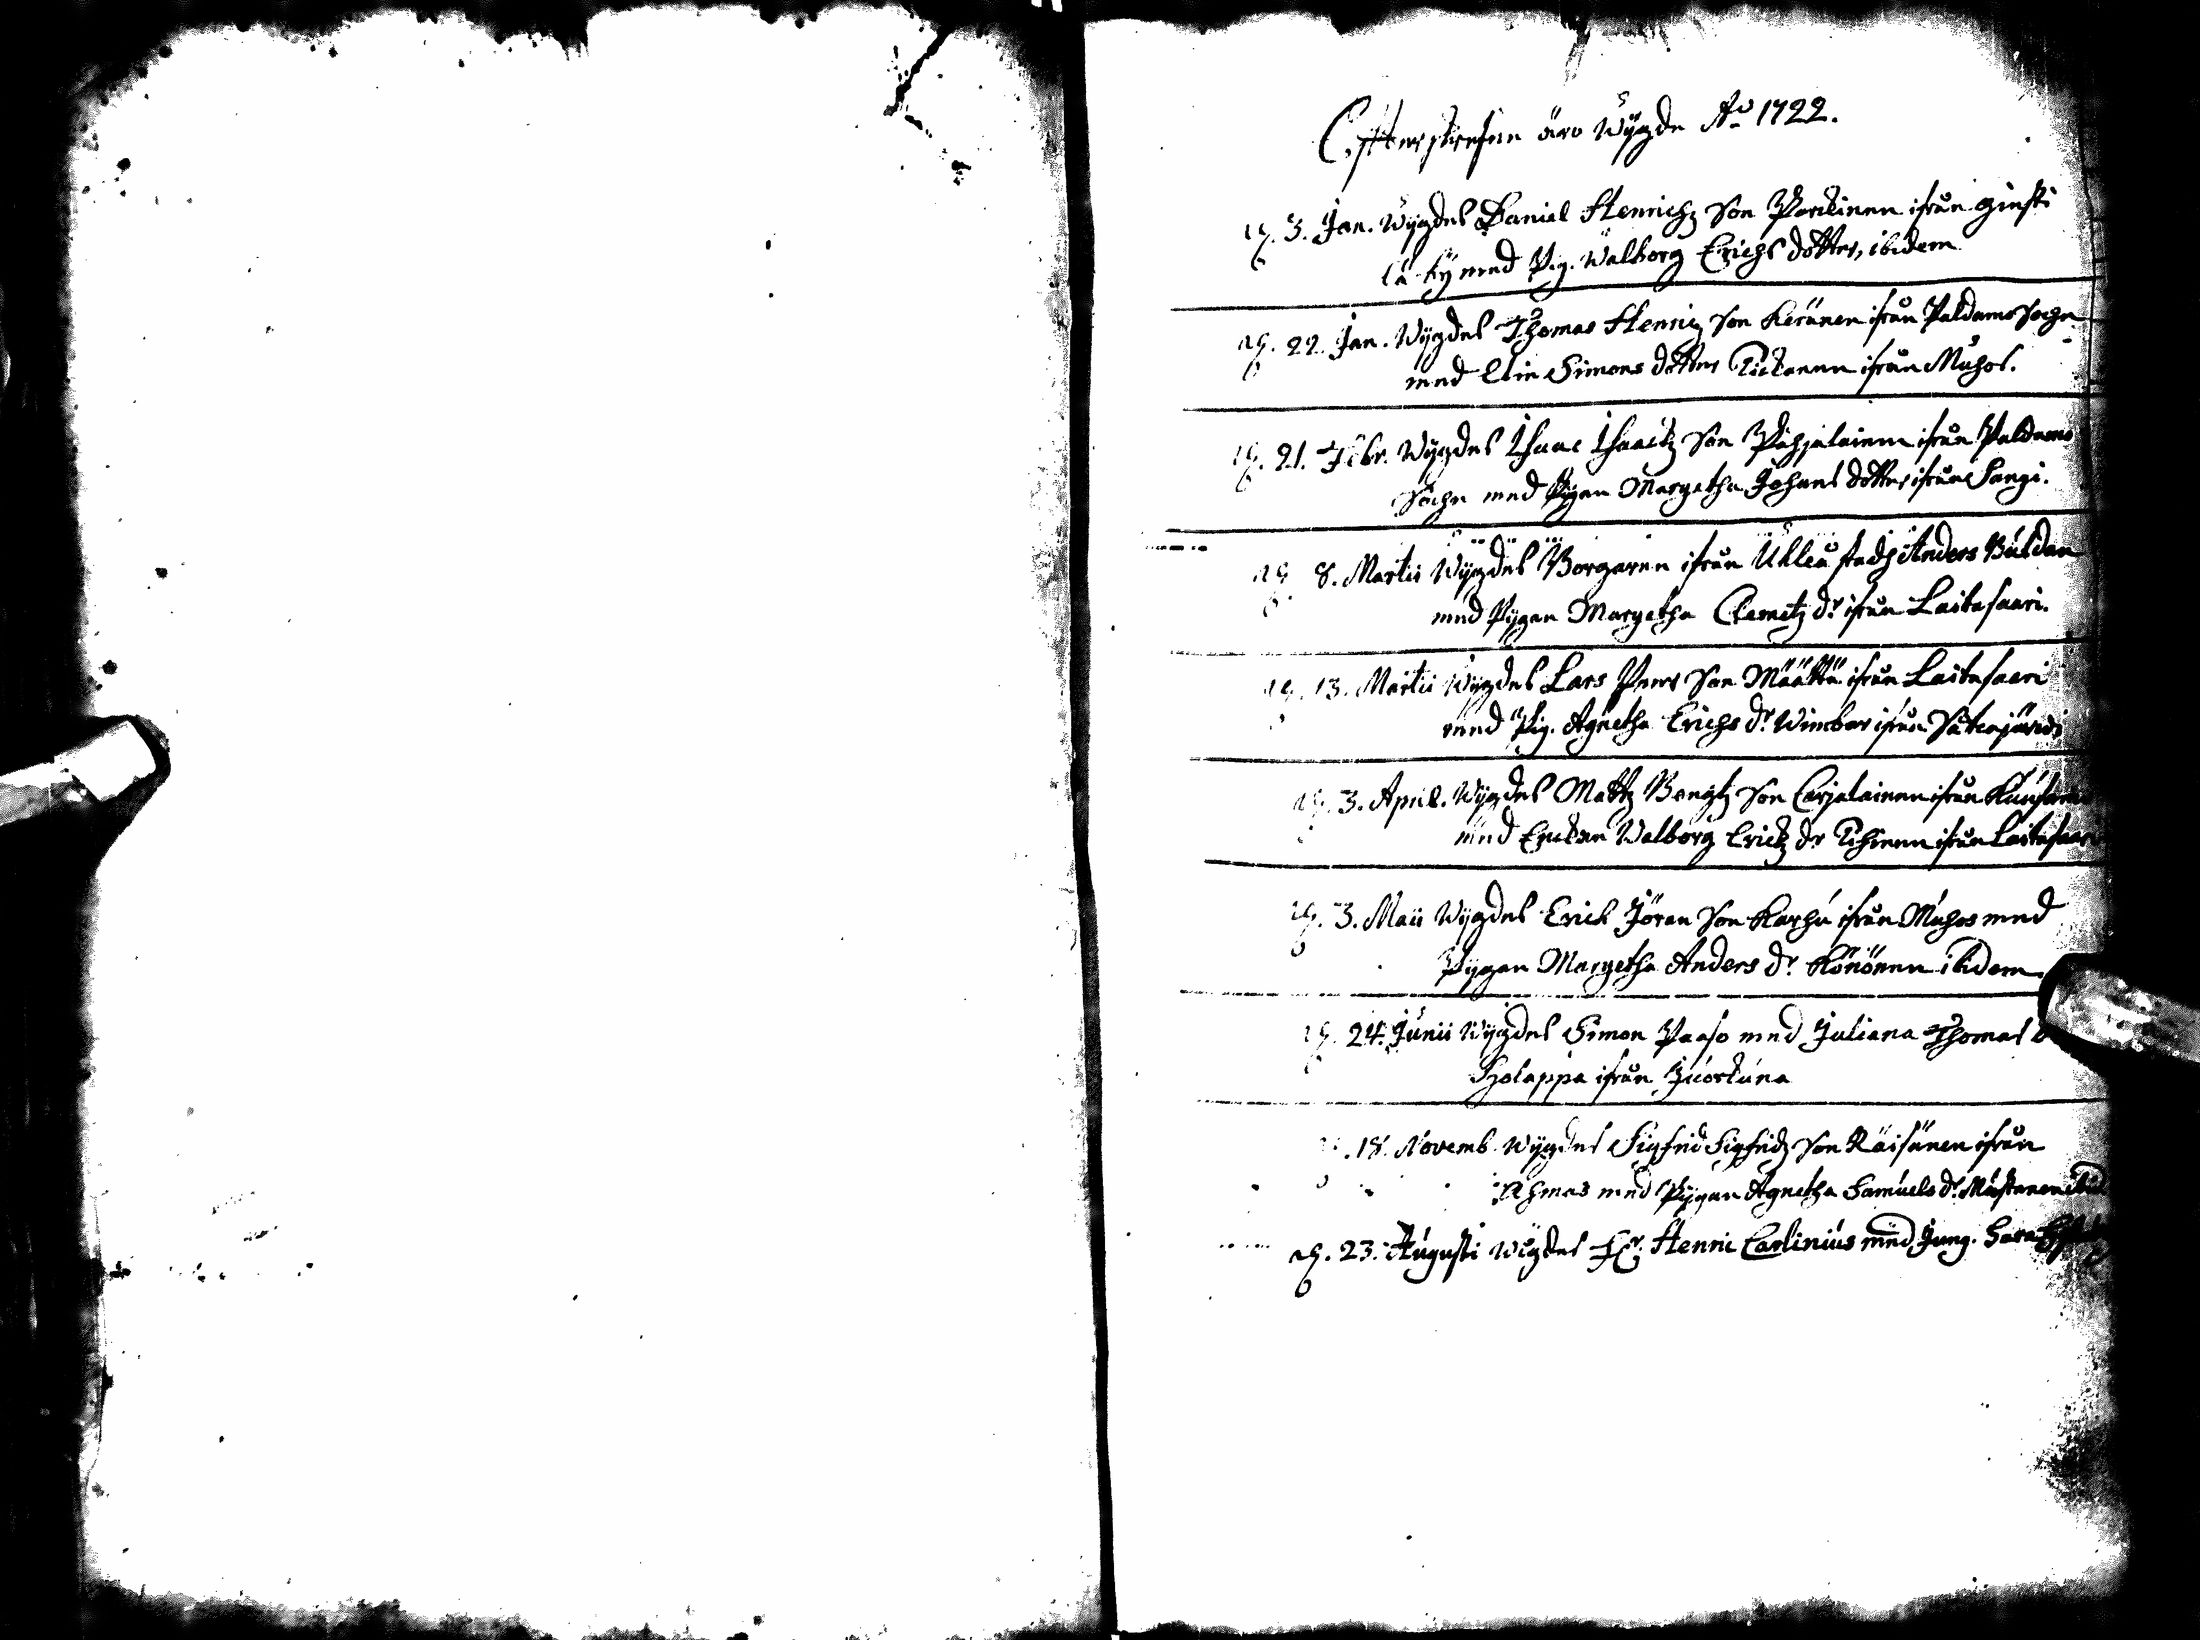 Efterskrefne äro Wÿgde A:o 1722.
d. 3. Jan. Wÿgdes Daniel Henrichz Son Parckinen ifrån
by med Pig. Walborg Erichs dotter, ibidem
d. 22. Jan. Wÿgdes Thomas Henricz Son Keränen ifrån Paldamo Sochn
med Elin Simons dotter Tickanen ifrån Muhos.
d. 21. Febr. Wÿgdes Isaac Isaacz Son Påhjalainen ifrån Paldamo
Sochn med Pigan Margetha Johans dotter ifrån Sangi.
d. 8. Martii Wÿgdes Borgaren ifrån Uhleå stadh Anders Buldan
med Pÿgan Margetha Clemetz dr ifrån Laitasaari.
d. 13. Martii Wÿgdes Lars Pers Son Määttä ifrån Laitasaari
med Pig. Agnetha Erichs dr Wimbar ifrån Såtkajärvi
d. 3. April. Wÿgdes Mattz Bengtz Son Carjalainen ifrån
med Enckan Walborg Erickz dr Tihinen ifrån Laitasaari
d. 3. Maii Wÿgdes Erich Jöran Son Karhu ifrån Muhos med
Pÿgan Margetha Anders dr Könönen ibidem
d. 24. Junii Wÿgdes Simon Paaso med Juliana Thomas
Holappa ifrån
d. 18. Novemb. Wÿgdes Sigfrid Sigfridz Son Räisänen ifrån
Ahmas med Pÿgan Agnetha Samuels dr Mustonen
d. 23. Augusti Wigdes Hr. Henric Carlinius med Jung. Sara